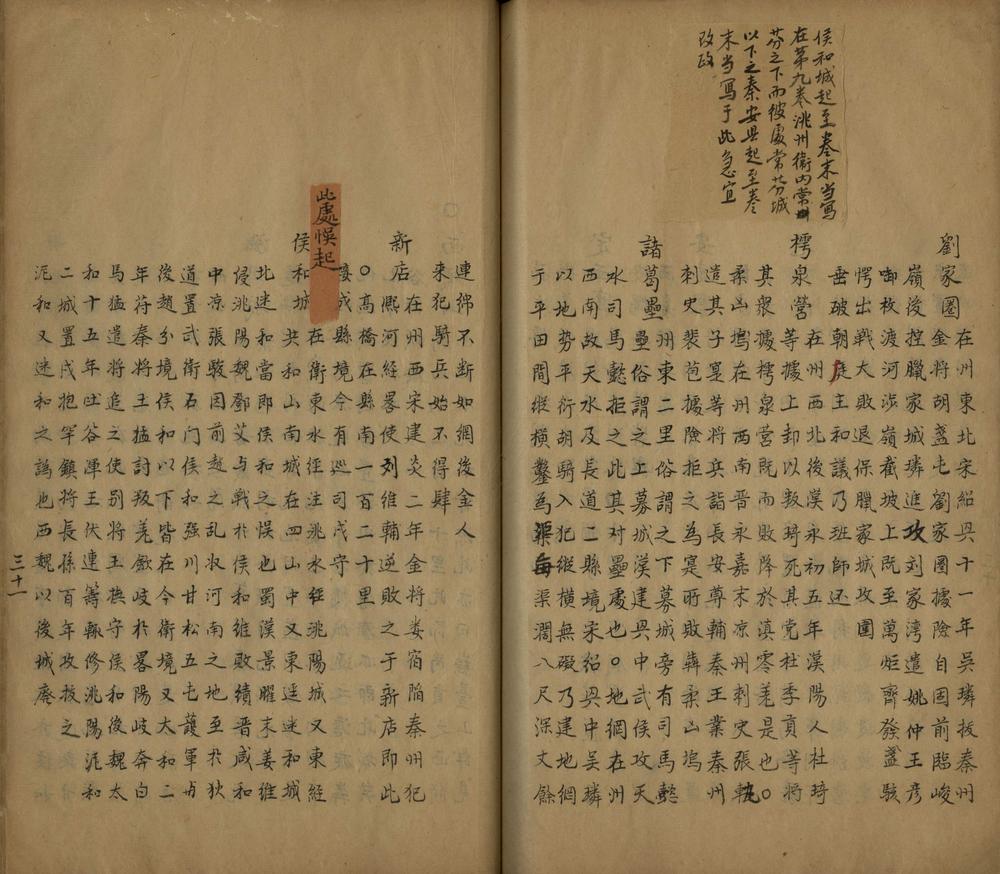 侯和城起至卷末当寫
在第九卷洮州衛内常
芬之下而彼處常芬城
以下之秦安县起至卷
末当寫于此急宜
改政
劉家圈在州東北宋紹興十一年吳璘拔秦州
金将胡盞屯劉家圈據險自固前臨峻
嶺後控臘家城璘進攻刘家湾遣姚仲王彦
啣枚渡河涉嶺截坡上既至萬炬齊發盞駭
愕出戰大敗退保臘家城攻圍
垂破朝庭主和議乃班師还
樗泉營在州西北後漢永初五年漢陽人杜琦
等據上邽以叛琦死其党杜季貢等将
其衆據樗泉營既而敗降於滇零羌是也○
柔凶塢在州西南晋永嘉末凉州刺史張軌
遣其子寔等将兵詣長安尊輔秦王業秦州
刺史裴苞據險拒之為寔所敗犇柔凶塢
諸葛壘州東二里俗謂之下募城旁有司馬懿
壘俗謂之上募城漢建興中武侯攻天
水司馬懿拒之此其对壘處也○地網在州
西南故天水及長道二縣境宋紹興中吴璘
以地勢平衍胡騎入犯縱横無礙乃建地網
于平田間縱横鑿為渠每渠濶八尺深丈餘
連綿不断如網後金人
来犯騎兵始不得肆
新店在州西宋建炎二年金将娄宿陷秦州犯
熙河經畧使列維輔逆敗之于新店即此
○高橋在縣南一百二十里
婁戎縣境今有廵司戌守
此處悮起
侯和城在衛東水經注洮水經洮陽城又東經
共和山南城在四山中又東逕迷和城
北迷和當即侯和之悮也蜀漢景曜末姜維
侵洮陽魏鄧艾与戰於侯和維敗績晋咸和
中凉張駿因前趙之乱収河南之地至於狄
道置武衛石门侯和强川甘松五屯護軍与
後趙分境侯和以下皆在今衛境又大和二
年苻秦将王猛討叛羌歛岐於畧陽岐奔白
馬猛遣将追之使别将王撫守侯和後魏太
和十五年吐谷渾王伏連籌輙修洮陽泥和
二城置戌抱罕鎮将長孫百年攻拔之
泥和又迷和之譌也西魏以後城廢
三十一